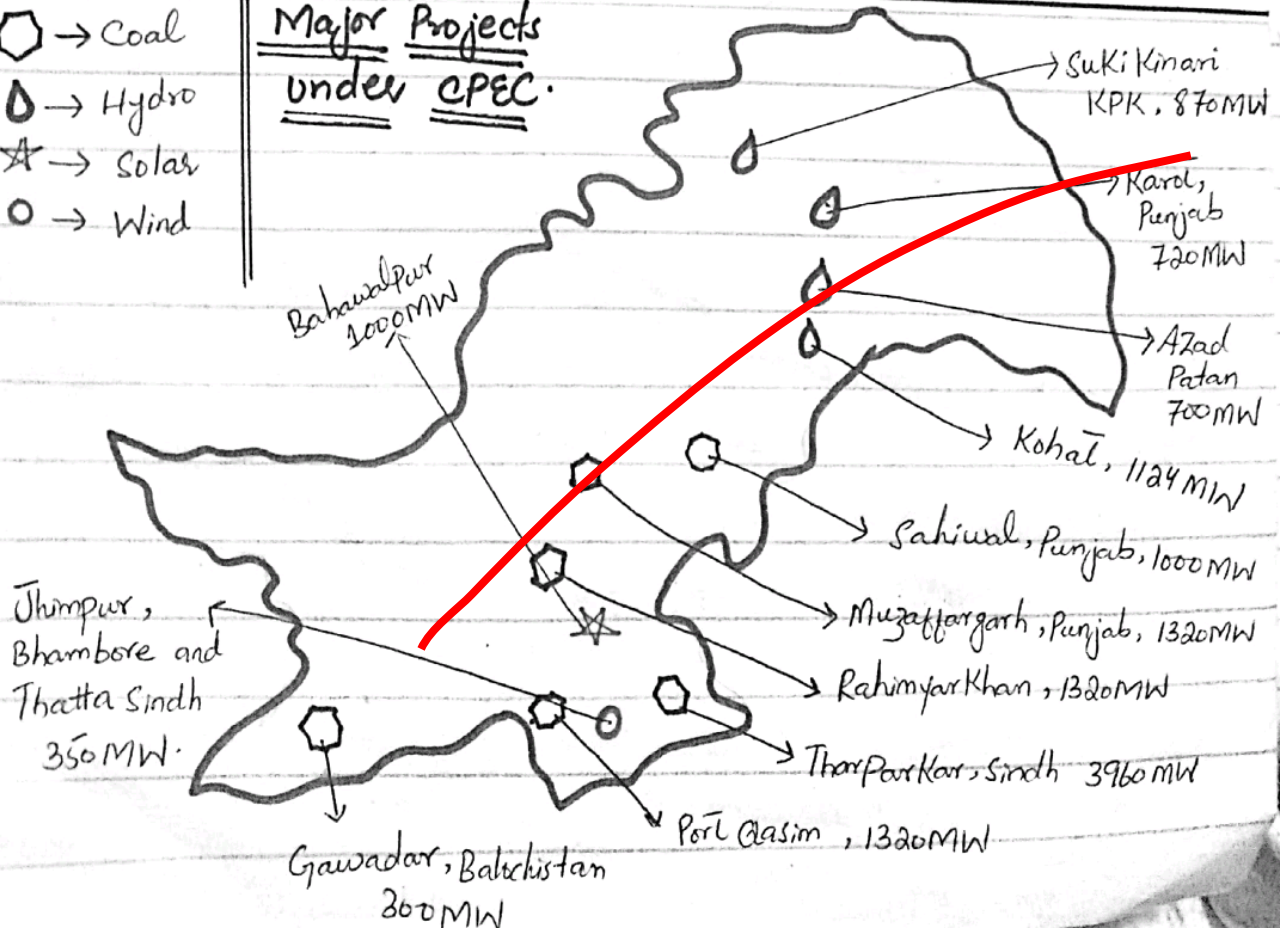 → Coal
→ Hydro
→ Solar
→ Wind
Major Projects
under CPEC.
Suki Kinari
KPK, 870MW
Karol,
Punjab
720MW
Azad
Patan
700MW
Kohat, 1124MW
Bahawalpur
1000MW
Sahiwal, Punjab, 1000MW
Muzaffargarh, Punjab, 1320MW
RahimyarKhan, 1320MW
TharParkar, Sindh 3960MW
Port Qasim, 1320MW
Jhimpur,
Bhambore and
Thatta Sindh
350MW.
Gawadar, Balochistan
300MW